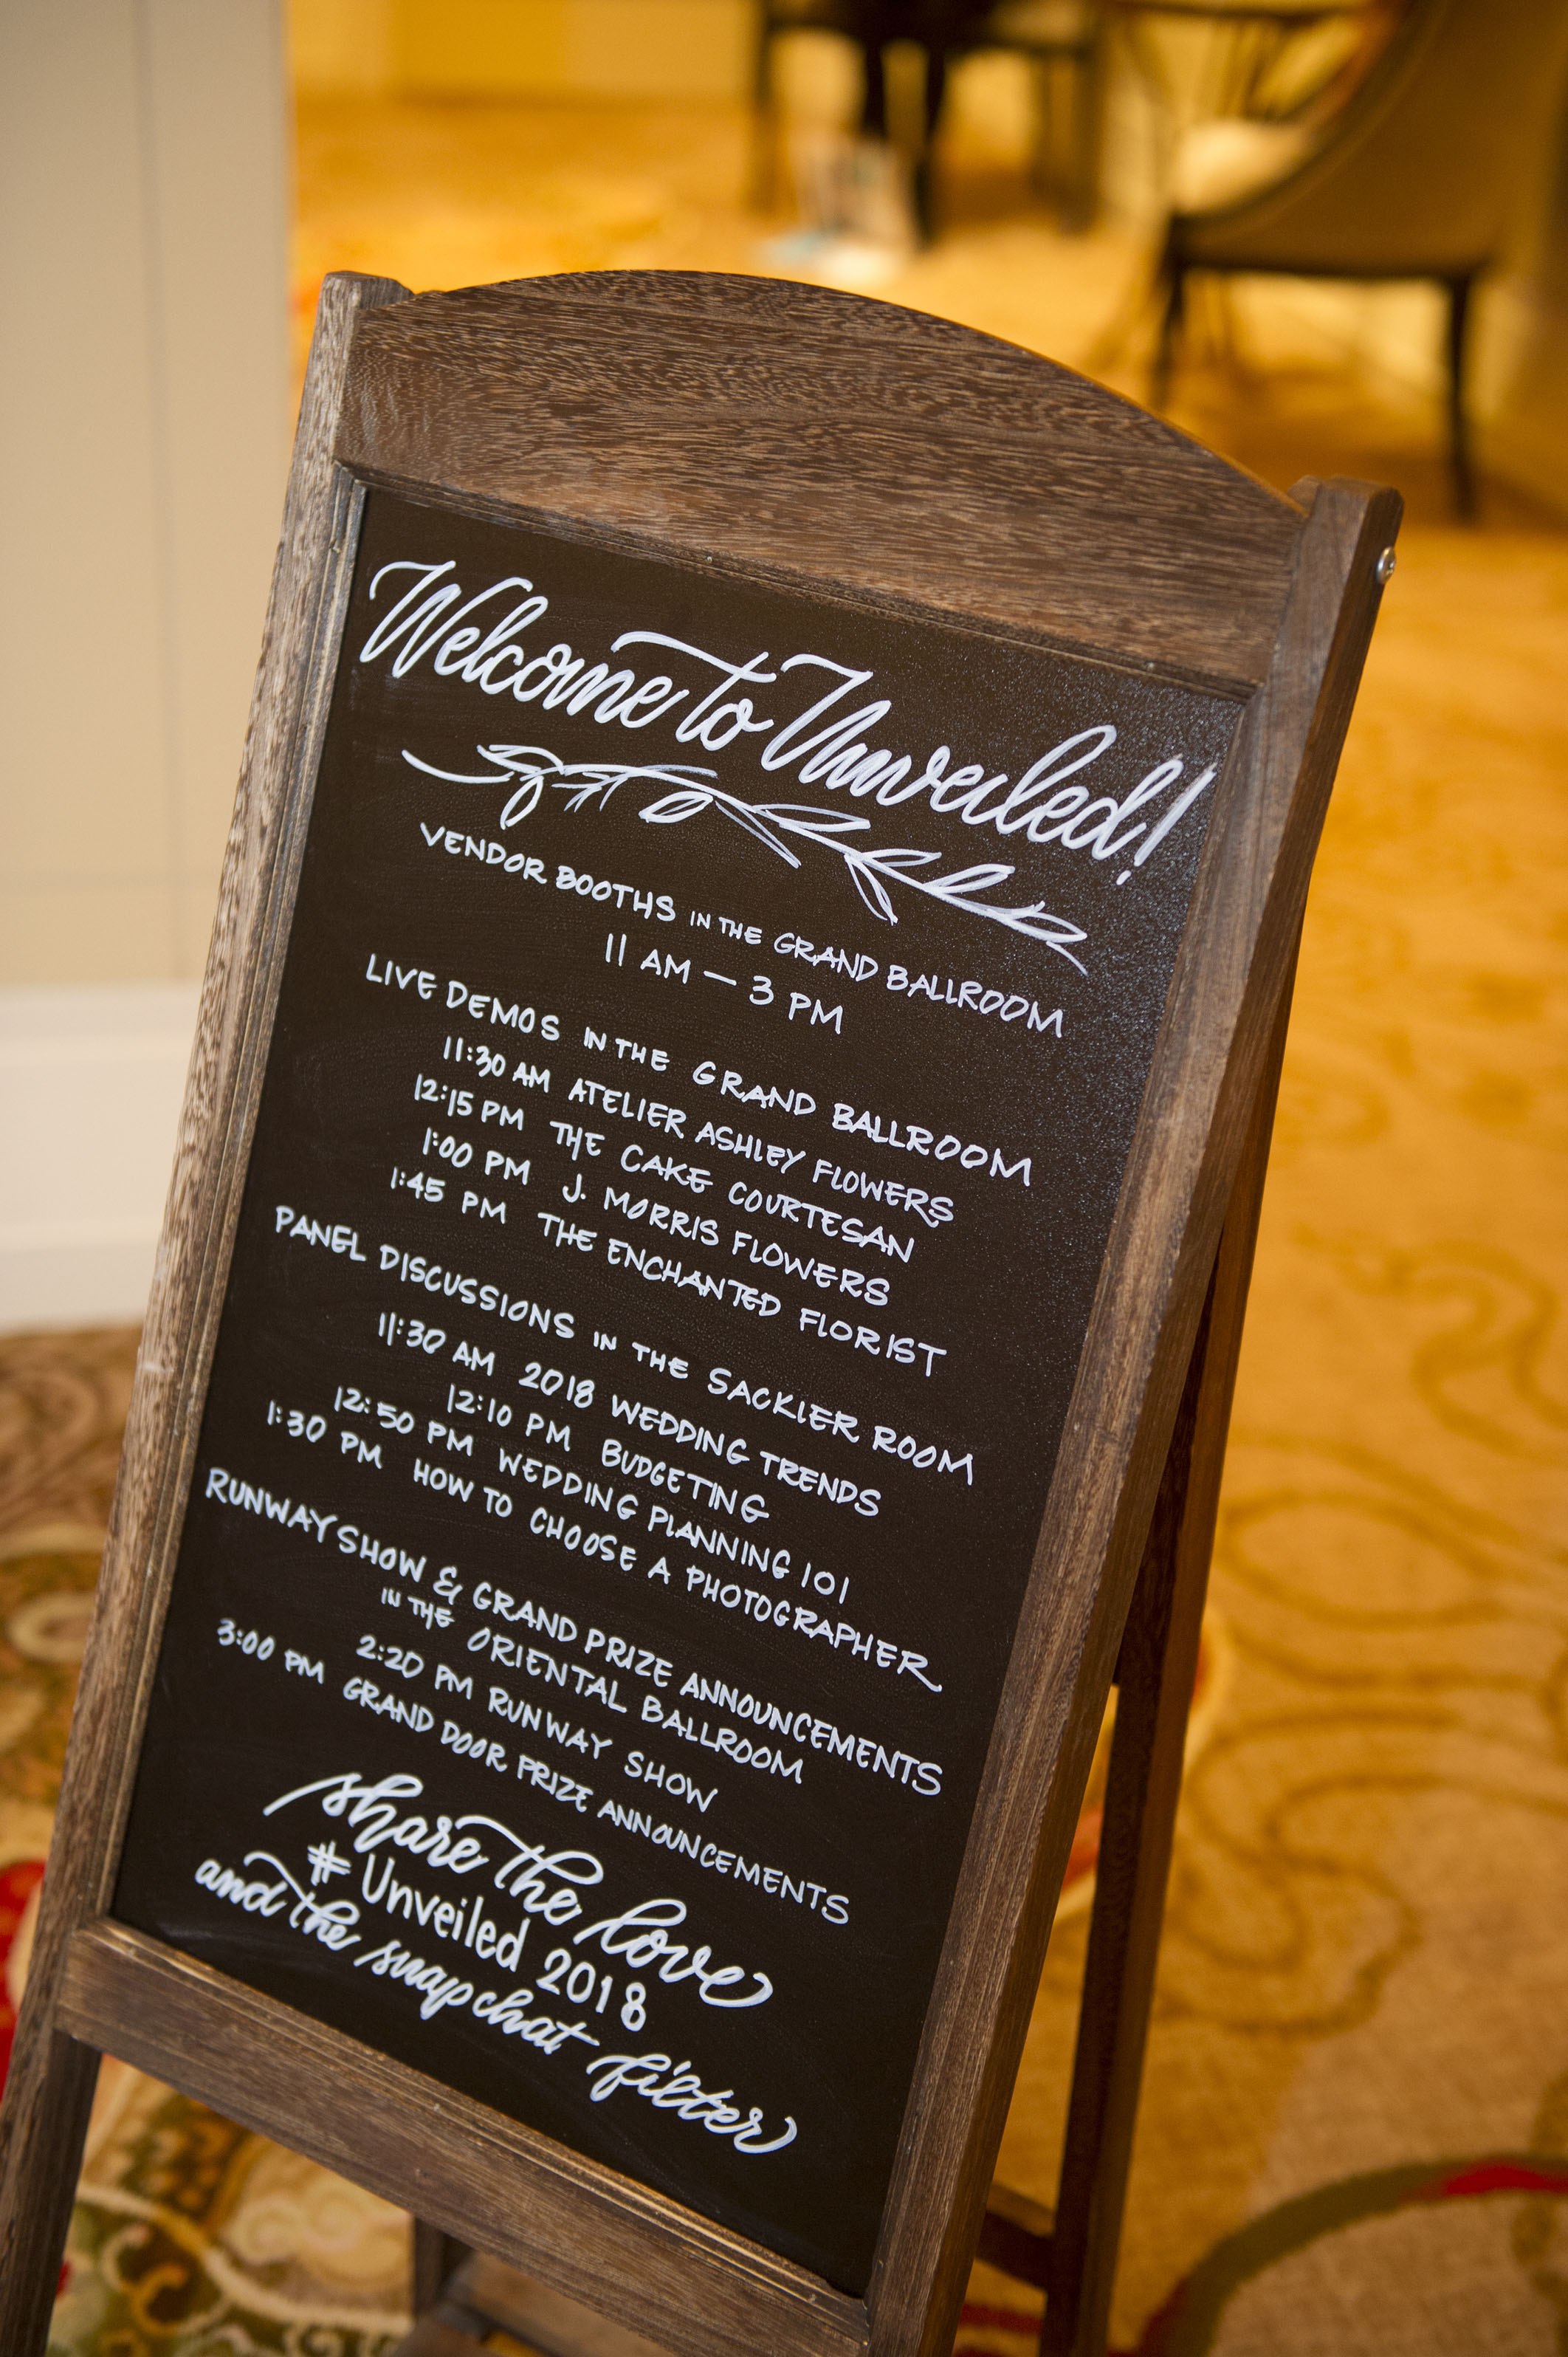 Welcome to Unveiled!
VENDOR BOOTHS IN THE GRAND BALLROOM
11 AM — 3 PM
LIVE DEMOS IN THE GRAND BALLROOM
11:30 AM ATELIER ASHLEY FLOWERS
12:15 PM THE CAKE COURTESAN
1:00 PM J. MORRIS FLOWERS
1:45 PM THE ENCHANTED FLORIST
PANEL DISCUSSIONS IN THE SACKLER ROOM
11:30 AM 2018 WEDDING TRENDS
12:10 PM BUDGETING
12:50 PM WEDDING PLANNING 101
1:30 PM HOW TO CHOOSE A PHOTOGRAPHER
RUNWAY SHOW & GRAND PRIZE ANNOUNCEMENTS
IN THE ORIENTAL BALLROOM
2:20 PM RUNWAY SHOW
3:00 PM GRAND DOOR PRIZE ANNOUNCEMENTS
share the love
# Unveiled 2018
and the snapchat filter